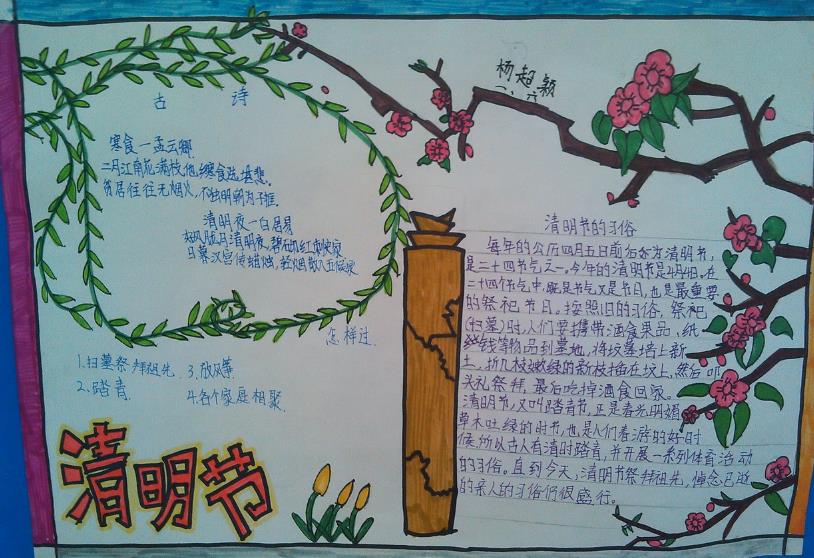 杨超颖
一、六
古 诗
寒食一孟云卿
二月江南花满枝,他
贫居往往无烟火,不独明朝为子推
清明夜一白居易
好风胧月清明夜,碧砌红
日暮汉宫传蜡烛,轻烟散入五侯家
怎样过
1.扫墓祭拜祖先 3.放风筝
2.踏青 4.各个家庭相聚
清明节
清明节的习俗
每年的公历四月五日前后为清明节,
是二十四节气之一。今年的清明节是4月4日,在
二十四个节气中,既是节气又是节日,也是最重要
的祭祀节日。按照旧的习俗,祭祀
(扫墓)时,人们要携带酒食果品、纸
钱等物品到墓地,将坟墓培上新
土,折几枝嫩绿的新枝插在坟上,然后叩
头礼祭拜,最后吃掉酒食回家。
清明节,又叫踏青节,正是春光明媚
草木吐绿的时节,也是人们春游的好时
候,所以古人有清时踏青,并开展一系列体育活动
的习俗。直到今天,清明节祭拜祖先,悼念已逝
的亲人的习俗仍很盛行。